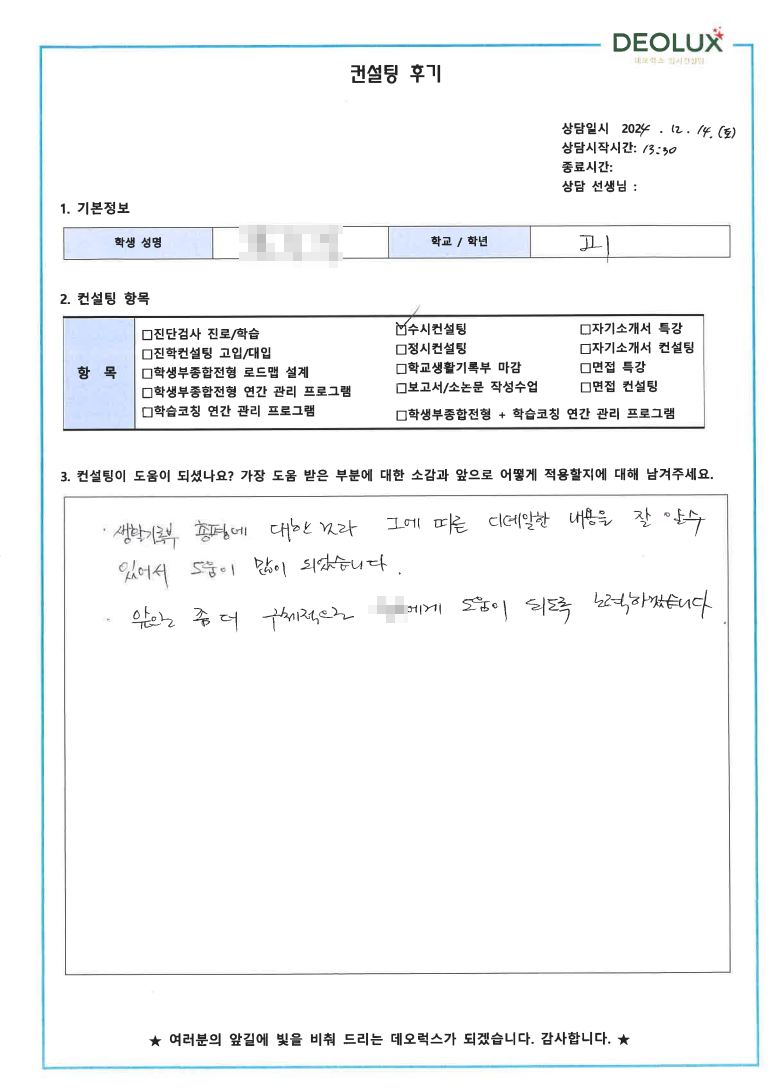 DEOLUX
데오럭스 입시컨설팅
컨설팅 후기
상담일시 2024 . 12 . 14. (토)
상담시작시간: 13:30
종료시간:
상담 선생님 :
1. 기본정보
학생 성명 학교 / 학년 고1
2. 컨설팅 항목
항 목
□진단검사 진로/학습 ☑수시컨설팅 □자기소개서 특강
□진학컨설팅 고입/대입 □정시컨설팅 □자기소개서 컨설팅
□학생부종합전형 로드맵 설계 □학교생활기록부 마감 □면접 특강
□학생부종합전형 연간 관리 프로그램 □보고서/소논문 작성수업 □면접 컨설팅
□학습코칭 연간 관리 프로그램 □학생부종합전형 + 학습코칭 연간 관리 프로그램
3. 컨설팅이 도움이 되셨나요? 가장 도움 받은 부분에 대한 소감과 앞으로 어떻게 적용할지에 대해 남겨주세요.
· 생활기록부 총평에 대한 그에 따른 디테일한 내용을 잘 알수
있어서 도움이 많이 되었습니다.
· 좀 더 구체적으로 에게 도움이 되도록 노력하겠습니다
★ 여러분의 앞길에 빛을 비춰 드리는 데오럭스가 되겠습니다. 감사합니다. ★